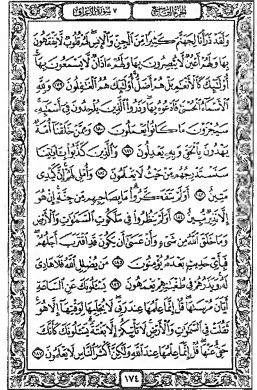 الجزء التاسع ٧ سورة الأعراف
ولقد ذرأنا لجهنم كثيرا من الجن والإنس لهم قلوب لا يفقهون
بها ولهم أعين لا يبصرون بها ولهم ءاذان لا يسمعون بها
أولئك كالأنعم بل هم أضل أولئك هم الغفلون ١٧٩ ولله
الأسماء الحسنى فادعوه بها وذروا الذين يلحدون في أسمئه
سيجزون ما كانوا يعملون ١٨٠ وممن خلقنا أمة
يهدون بالحق وبه يعدلون ١٨١ والذين كذبوا بئايتنا
سنستدرجهم من حيث لا يعلمون ١٨٢ وأملي لهم إن كيدي
متين ١٨٣ أولم يتفكروا ما بصاحبهم من جنة إن هو
إلا نذير مبين ١٨٤ أولم ينظروا في ملكوت السموت والأرض
وما خلق الله من شيء وأن عسى أن يكون قد اقترب أجلهم
فبأي حديث بعده يؤمنون ١٨٥ من يضلل الله فلا هادي
له ويذرهم في طغينهم يعمهون ١٨٦ يسئلونك عن الساعة
أيان مرسىها قل إنما علمها عند ربي لا يجليها لوقتها إلا هو
ثقلت في السموت والأرض لا تأتيكم إلا بغتة يسئلونك كأنك
حفي عنها قل إنما علمها عند الله ولكن أكثر الناس لا يعلمون ١٨٧
١٧٤